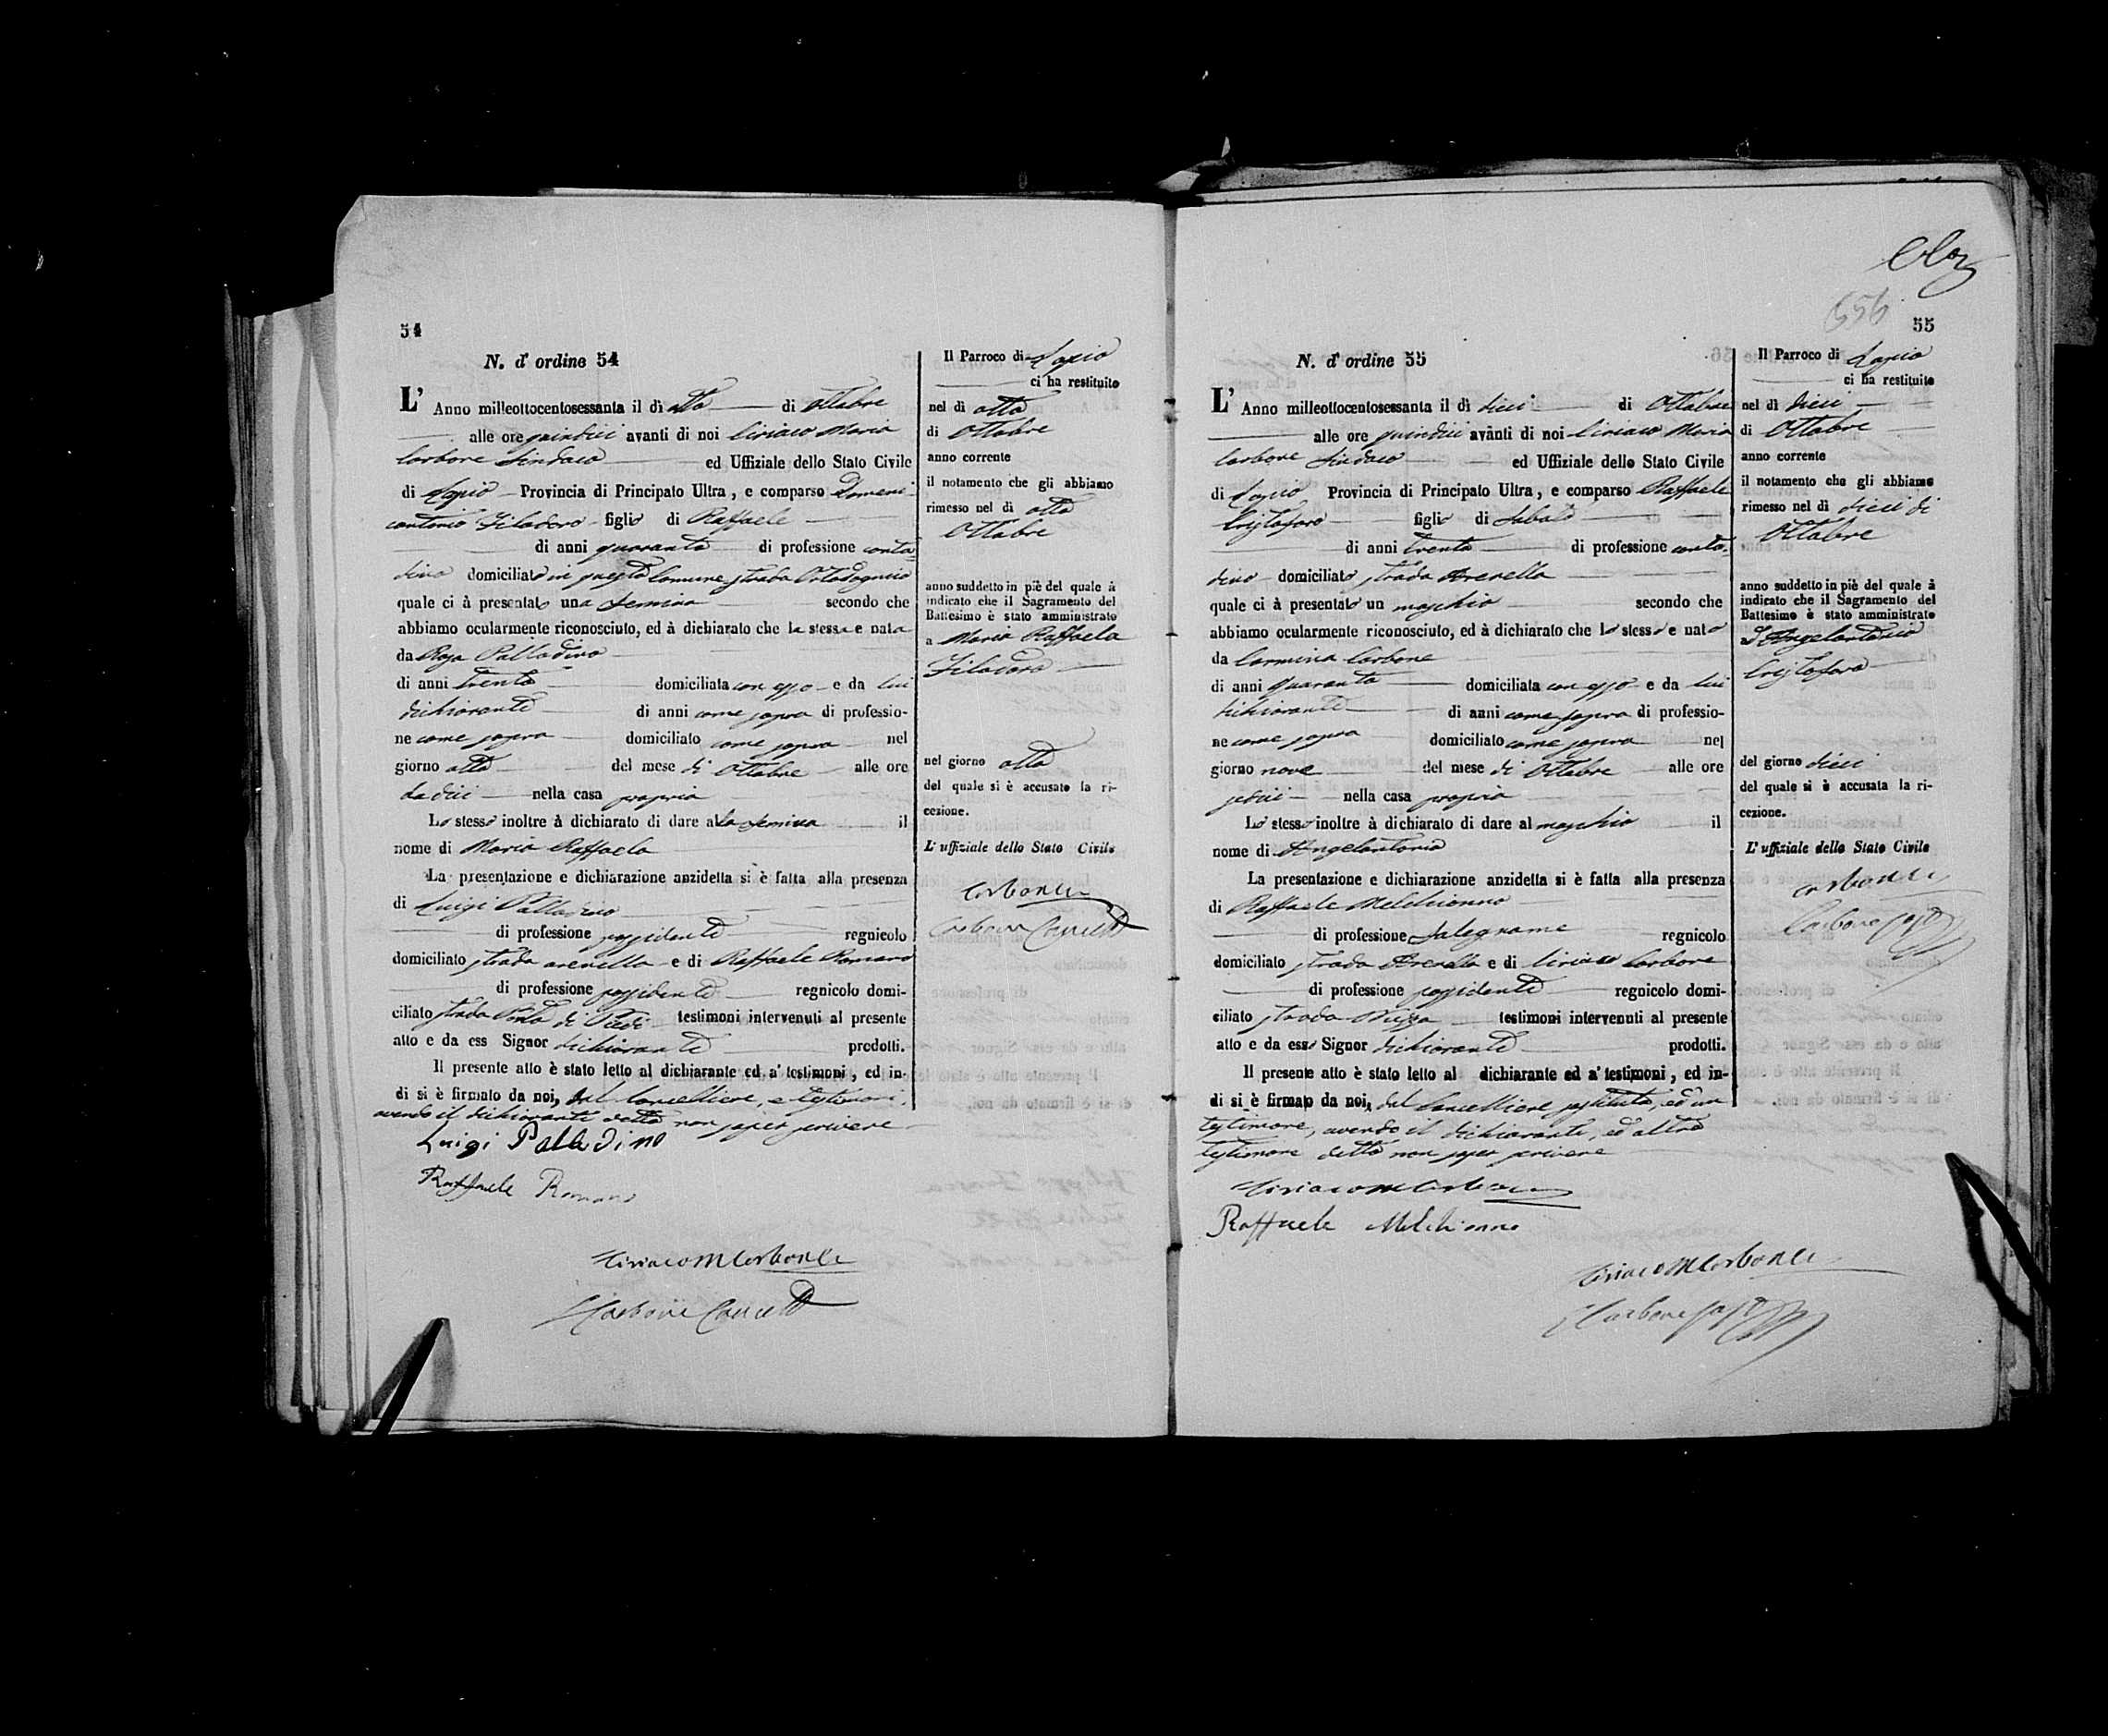 54
N. d' ordine 54
L' Anno milleottocentosessanta il dì otto di ottobre
alle ore quindici avanti di noi Ciriaco Maria
Carbone Sindaco ed Uffiziale dello Stato Civile
di Lapio Provincia di Principato Ultra, e comparso Domeni
cantonio Filadoro figlio di Raffaele
di anni quaranta di professione conta
dino domiciliato in questo Comune strada
quale ci à presentato una femina secondo che
abbiamo ocularmente riconosciuto, ed à dichiarato che la stessa e nata
da Rosa Palladino
di anni trenta domiciliata con esso e da lui
dichiarante di anni come sopra di professio-
ne come sopra domiciliato come sopra nel
giorno otto del mese di Ottobre alle ore
dodici nella casa propria
Lo stesso inoltre à dichiarato di dare alla femina il
nome di Maria Raffaela
La presentazione e dichiarazione anzidetta si è fatta alla presenza
di Luigi Palladino
di professione possidente regnicolo
domiciliato strada arenella e di Raffaele Romano
di professione possidente regnicolo domi-
ciliato strada Porta di Piedi testimoni intervenuti al presente
atto e da ess Signor dichiarante prodotti.
Il presente atto è stato letto al dichiarante ed a' testimoni, ed in-
di si è firmato da noi, dal Cancelliere, e testimoni,
avendo il dichiarante detto non saper scrivere
Luigi Palladino
Raffaele Romano
Ciriaco M Carbone
Carbone Cancell
Il Parroco di Lapio
ci ha restituito
nel dì otto
di Ottobre
anno corrente
il notamento che gli abbiamo
rimesso nel dì otto
Ottobre
anno suddetto in piè del quale à
indicato che il Sagramento del
Battesimo è stato amministrato
a Maria Raffaela
Filadoro
nel giorno otto
del quale si è accusato la ri-
cezione.
L' uffiziale dello Stato Civile
Carbone
Carbone Cancell
656
55
N. d' ordine 55
L' Anno milleottocentosessanta il dì dieci di Ottobre
alle ore quindici avanti di noi Ciriaco Maria
Carbone Sindaco ed Uffiziale dello Stato Civile
di Lapio Provincia di Principato Ultra, e comparso Raffaele
Cristofaro figlio di Sabato
di anni trenta di professione conta
dino domiciliato strada Arenella
quale ci à presentato un maschio secondo che
abbiamo ocularmente riconosciuto, ed à dichiarato che lo stesso e nato
da Carmina Carbone
di anni quaranta domiciliata con esso e da lui
dichiarante di anni come sopra di professio-
ne come sopra domiciliato come sopra nel
giorno nove del mese di Ottobre alle ore
sedici nella casa propria
Lo stesso inoltre à dichiarato di dare al maschio il
nome di Angelantonio
La presentazione e dichiarazione anzidetta si è fatta alla presenza
di Raffaele Melchionno
di professione falegname regnicolo
domiciliato strada Arenella e di Ciriaco Carbone
di professione possidente regnicolo domi-
ciliato strada testimoni intervenuti al presente
atto e da esso Signor dichiarante prodotti.
Il presente atto è stato letto al dichiarante ed a' testimoni, ed in-
di si è firmato da noi, dal Cancelliere sostituto, ed un
testimone, avendo il dichiarante, ed altro
testimone detto non saper scrivere
Ciriaco M Carbone
Raffaele Melchionno
Ciriaco M Carbone
Carbone sost
Il Parroco di Lapio
ci ha restituito
nel dì dieci
di Ottobre
anno corrente
il notamento che gli abbiamo
rimesso nel dì dieci di
Ottobre
anno suddetto in piè del quale à
indicato che il Sagramento del
Battesimo è stato amministrato
ad Angelantonio
Cristofaro
del giorno dieci
del quale si è accusata la ri-
cezione.
L' uffiziale dello Stato Civile
Carbone
Carbone sost